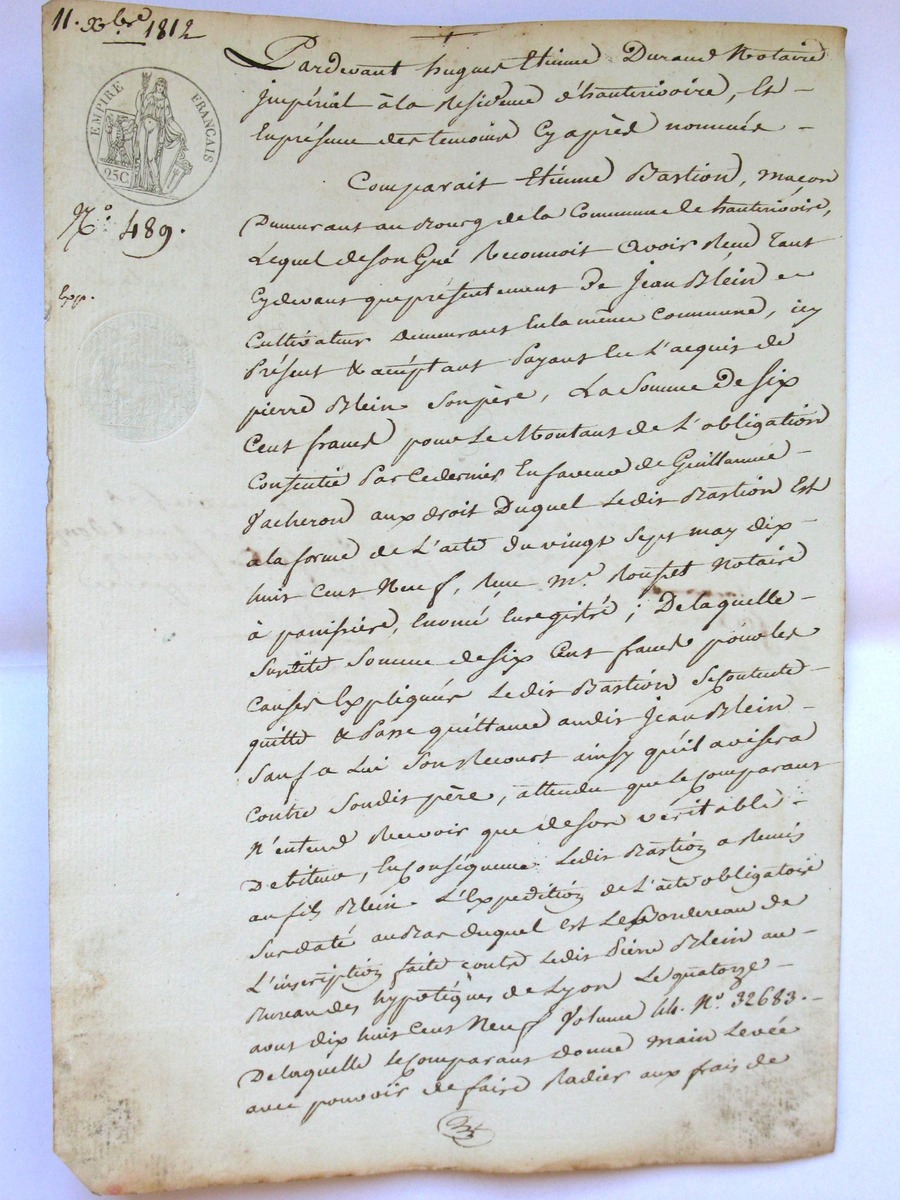 11. Xbre 1812
EMPIRE FRANÇAIS
25C
N.° 489.
Exp.
Pardevant hugues Etienne Durand Notaire
Impérial à la Residence d'hauterivoire, Et
En présence des temoins Cy après nommés -
Comparait Etienne Bastion, maçon
Demeurant au Bourg de la Commune de hauterivoire,
Lequel de son Gré Reconnoit avoir Reçu tant
Cydevant que présentement De Jean Blein
Cultivateur demeurant En la même Commune, icy
Présent & acceptant Payant En L'acquis de
pierre Blein son père, La Somme De Six
Cent francs pour Le Montant de L'obligation
Consentie Par Ce dernier En faveur de Guillaume -
Vacheron aux droit Duquel Ledit Bastion Est
a la forme de L'acte du vingt Sept may dix -
huit Cent Neuf, Reçu M.e Notaire
à panissière, Enregistré ; De laquelle -
Susdite Somme de Six Cent francs pour les
Causes Expliqués Ledit Bastion Se Contente -
quitte & Passe quittance audit Jean Blein -
Sauf a Lui Son Recours ainsy qu'il avisera
Contre Sondit père, attendu que Le Comparant
N'entend Recevoir que de son véritable -
Debiteur, En Conséquence Ledit Bastion a Remis
au fils Blein L'Expedition de L'acte obligatoire
Sus daté au Bas duquel est Le Bordereau de
L'inscription faite contre Ledit Pierre Blein au -
Bureau des hypotèques de Lyon Le quatorze -
aout dix huit Cent Neuf Volume 44. N.° 32683. -
De laquelle Le Comparant donne main Levée
avec pouvoir de faire Radier aux frais de